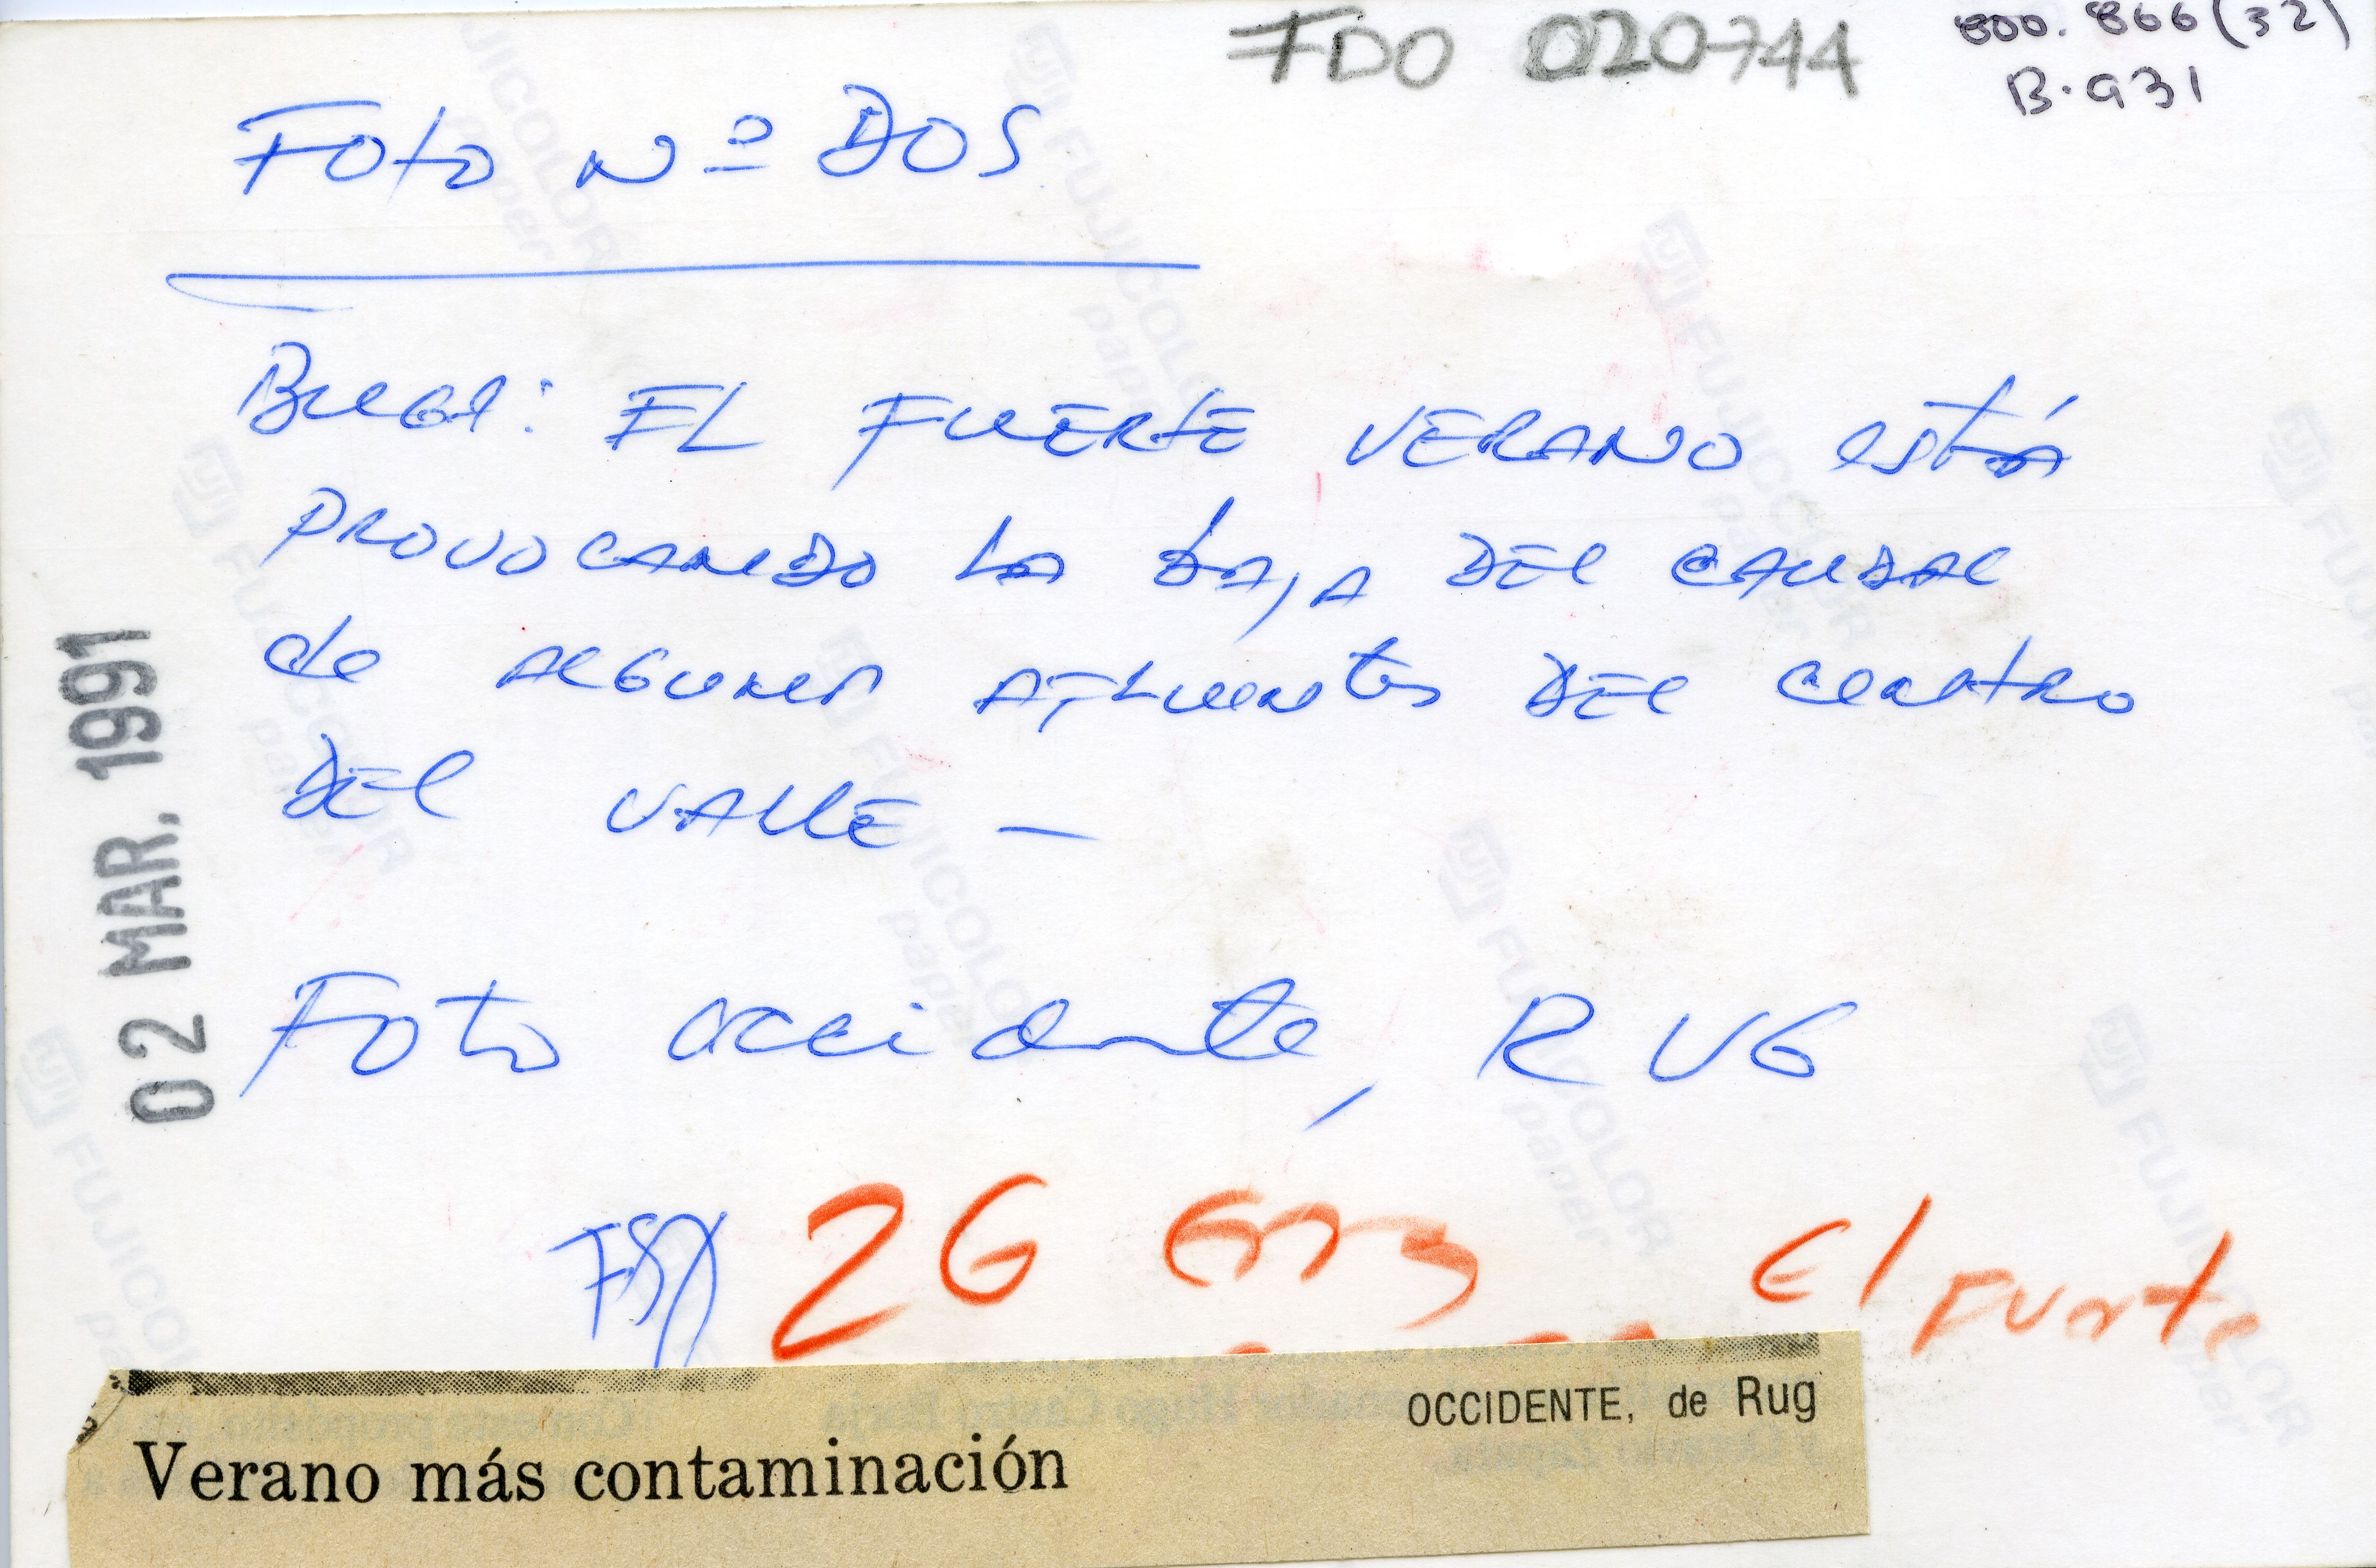 FDO 020744
800.866(32)
B.931
Foto Nº DOS
Buga: EL FUERTE VERANO está
PROVOCANDO LA baja DEL CAUDAL
de ALGUNOS AFLUENTES DEL centro
DEL VALLE —
02 MAR. 1991
Foto occidente, RUG
2G
El Fuerte
OCCIDENTE, de Rug
Verano más contaminación
FUJICOLOR
paper